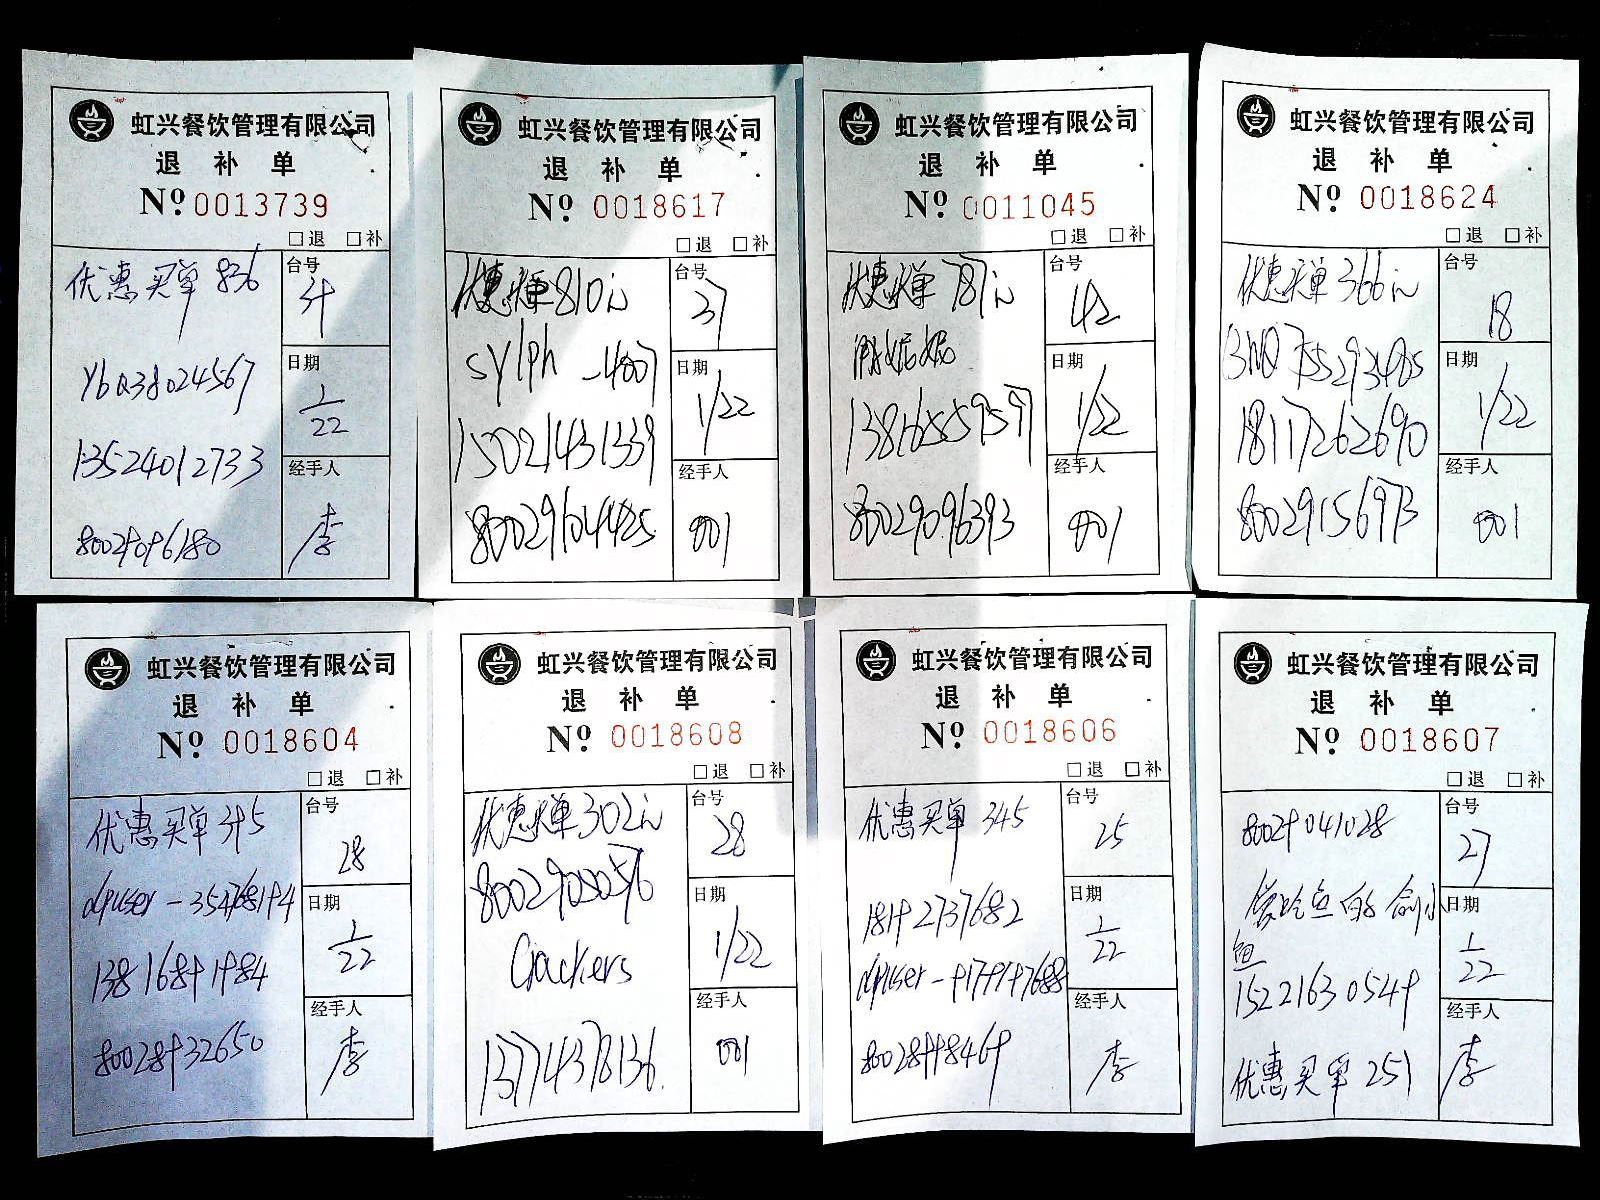 虹兴餐饮管理有限公司
退 补 单
Nº 0013739
□退 □补
优惠买单 836
台号
日期
1/22
13524012733
经手人
李
80029096180
虹兴餐饮管理有限公司
退 补 单
Nº 0018617
□退 □补
优惠买单810元
台号
37
sylph _4807
日期
1/22
15021431339
经手人
001
80029104425
虹兴餐饮管理有限公司
退 补 单
Nº 0011045
□退 □补
优惠买单787元
台号
42
日期
1/22
13816559597
经手人
001
80029096393
虹兴餐饮管理有限公司
退 补 单
Nº 0018624
□退 □补
优惠买单366元
台号
18
日期
1/22
18117262690
经手人
001
80029156973
虹兴餐饮管理有限公司
退 补 单
Nº 0018604
□退 □补
优惠买单 395
台号
28
日期
1/22
13816891984
经手人
李
80028932650
虹兴餐饮管理有限公司
退 补 单
Nº 0018608
□退 □补
优惠买单302元
台号
28
Crackers
日期
1/22
13774378136
经手人
001
虹兴餐饮管理有限公司
退 补 单
Nº 0018606
□退 □补
优惠买单 345
台号
25
18192737682
日期
1/22
经手人
李
80028998469
虹兴餐饮管理有限公司
退 补 单
Nº 0018607
□退 □补
80029041028
台号
27
日期
1/22
鱼
15221630549
经手人
李
优惠买单 251